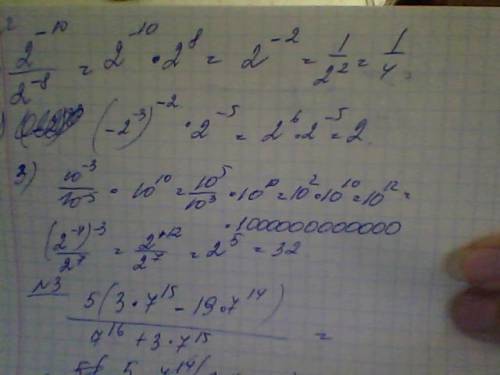 2^{-10}/2^{-8} = 2^{-10} · 2^8 = 2^{-2} = 1/2^2 = 1/4
(-2^{-3})^{-2} · 2^{-5} = 2^6 · 2^{-5} = 2
3) 10^{-3}/10^{-5} · 10^{10} = 10^5/10^3 · 10^{10} = 10^2 · 10^{10} = 10^{12} =
(2^{-4})^{-3}/2^7 = 2^{+12}/2^7 = 2^5 = 32
№3
5(3·7^{15} - 19·7^{14})/7^{16} + 3·7^{15} =